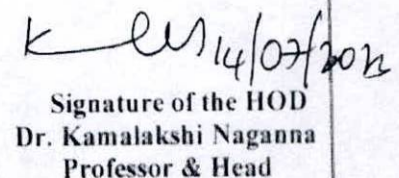 14/07/2023
Signature of the HOD
Dr. Kamalakshi Naganna
Professor & Head